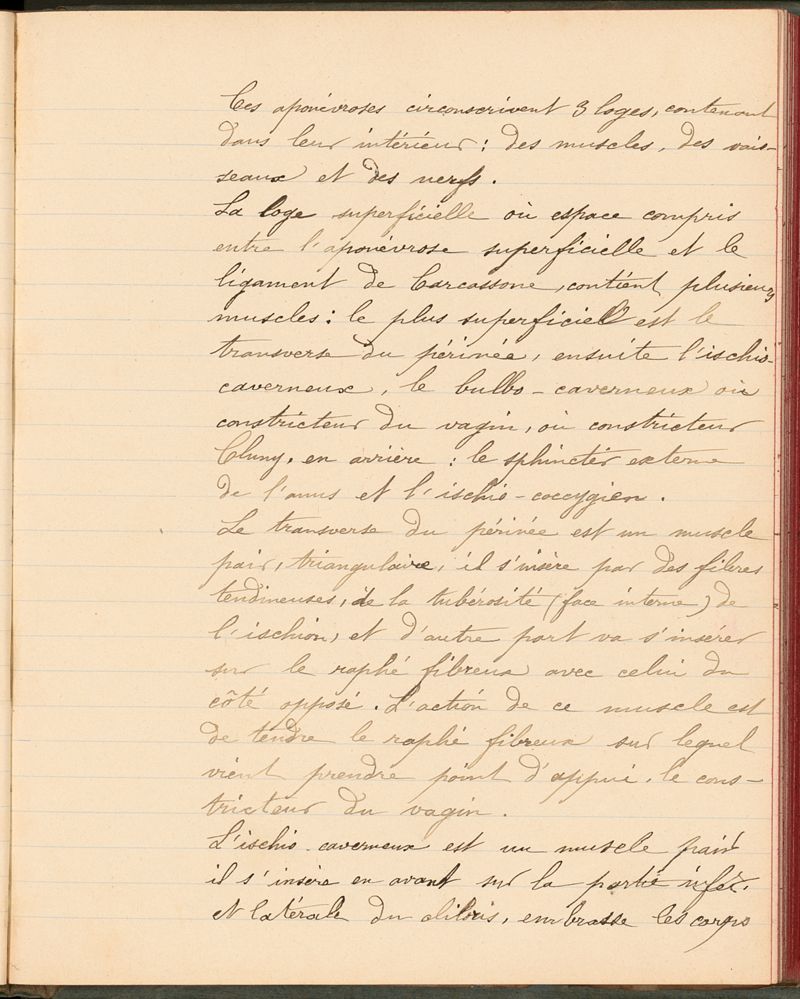 Ces aponévroses circonscrivent 3 loges, contenant
dans leur intérieur : des muscles, des vais-
seaux et des nerfs.
La loge superficielle où espace compris
entre l'aponévrose superficielle et le
ligament de Carcassone, contient plusieurs
muscles : le plus superficiel est le
transverse du périnée, ensuite l'ischio-
caverneux, le bulbo-caverneux où
constricteur du vagin, où constricteur
Cluny. en arrière : le sphincter externe
de l'anus et l'ischio-coccygien.
Le transverse du périnée est un muscle
pair, triangulaire, il s'insère par des fibres
tendineuses, de la tubérosité (face interne) de
l'ischion, et d'autre part va s'insérer
sur le raphé fibreux avec celui du
côté opposé. L'action de ce muscle est
de tendre le raphé fibreux sur lequel
vient prendre point d'appui, le cons-
tricteur du vagin.
L'ischio-caverneux est un muscle pair
il s'insère en avant sur la partie infér.
et latérale du clitoris, embrasse les corps